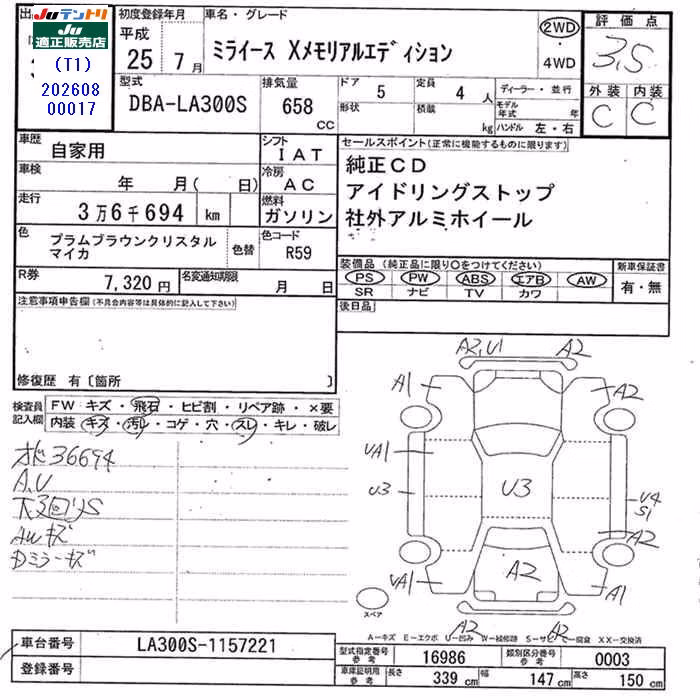 Juテントリ
Ju適正販売店
(T1)
202608
00017
初度登録年月
平成
25年7月
車名・グレード
ミライース Xメモリアルエディション
2WD
・
4WD
評価点
3.5
外装 内装
C C
型式
DBA-LA300S
排気量
658
CC
ドア 5
形状
定員 4 人
積載 kg
ディーラー・並行
モデル年式 年
ハンドル 左・右
車歴
自家用
シフト
IAT
車検
年 月( 日)
冷房
AC
走行
3万6千694 km
燃料
ガソリン
色
プラムブラウンクリスタル
マイカ
色替
色コード
R59
R券
7,320円
名変通知期限
月 日
セールスポイント(正常に機能するものに限ります)
純正CD
アイドリングストップ
社外アルミホイール
装備品(純正品に限り○をつけてください)
PS PW ABS エアB AW
SR ナビ TV カワ
新車保証書
有・無
後日品
注意事項申告欄(不具合内容等は具体的に記入して下さい)
修復歴 有〔箇所 〕
検査員
記入欄
FW キズ・飛石・ヒビ割・リペア跡・×要
内装 キズ・汚レ・コゲ・穴・スレ・キレ・破レ
36694
A,U
下回りS
AWキズ
Dミラーキズ
A2,U1 A2
A1 A2
UA1
U3 U3 U4
S1
A2
UA1 A2 A1
A2 A2
スペア
A−キズ E−エクボ U−凹み W−補修跡 S−サビ C−腐食 XX−交換済
車台番号
LA300S-1157221
登録番号
型式指定番号
参考
16986
類別区分番号
参考
0003
車庫証明用
参考
長さ 339 cm
幅 147 cm
高さ 150 cm